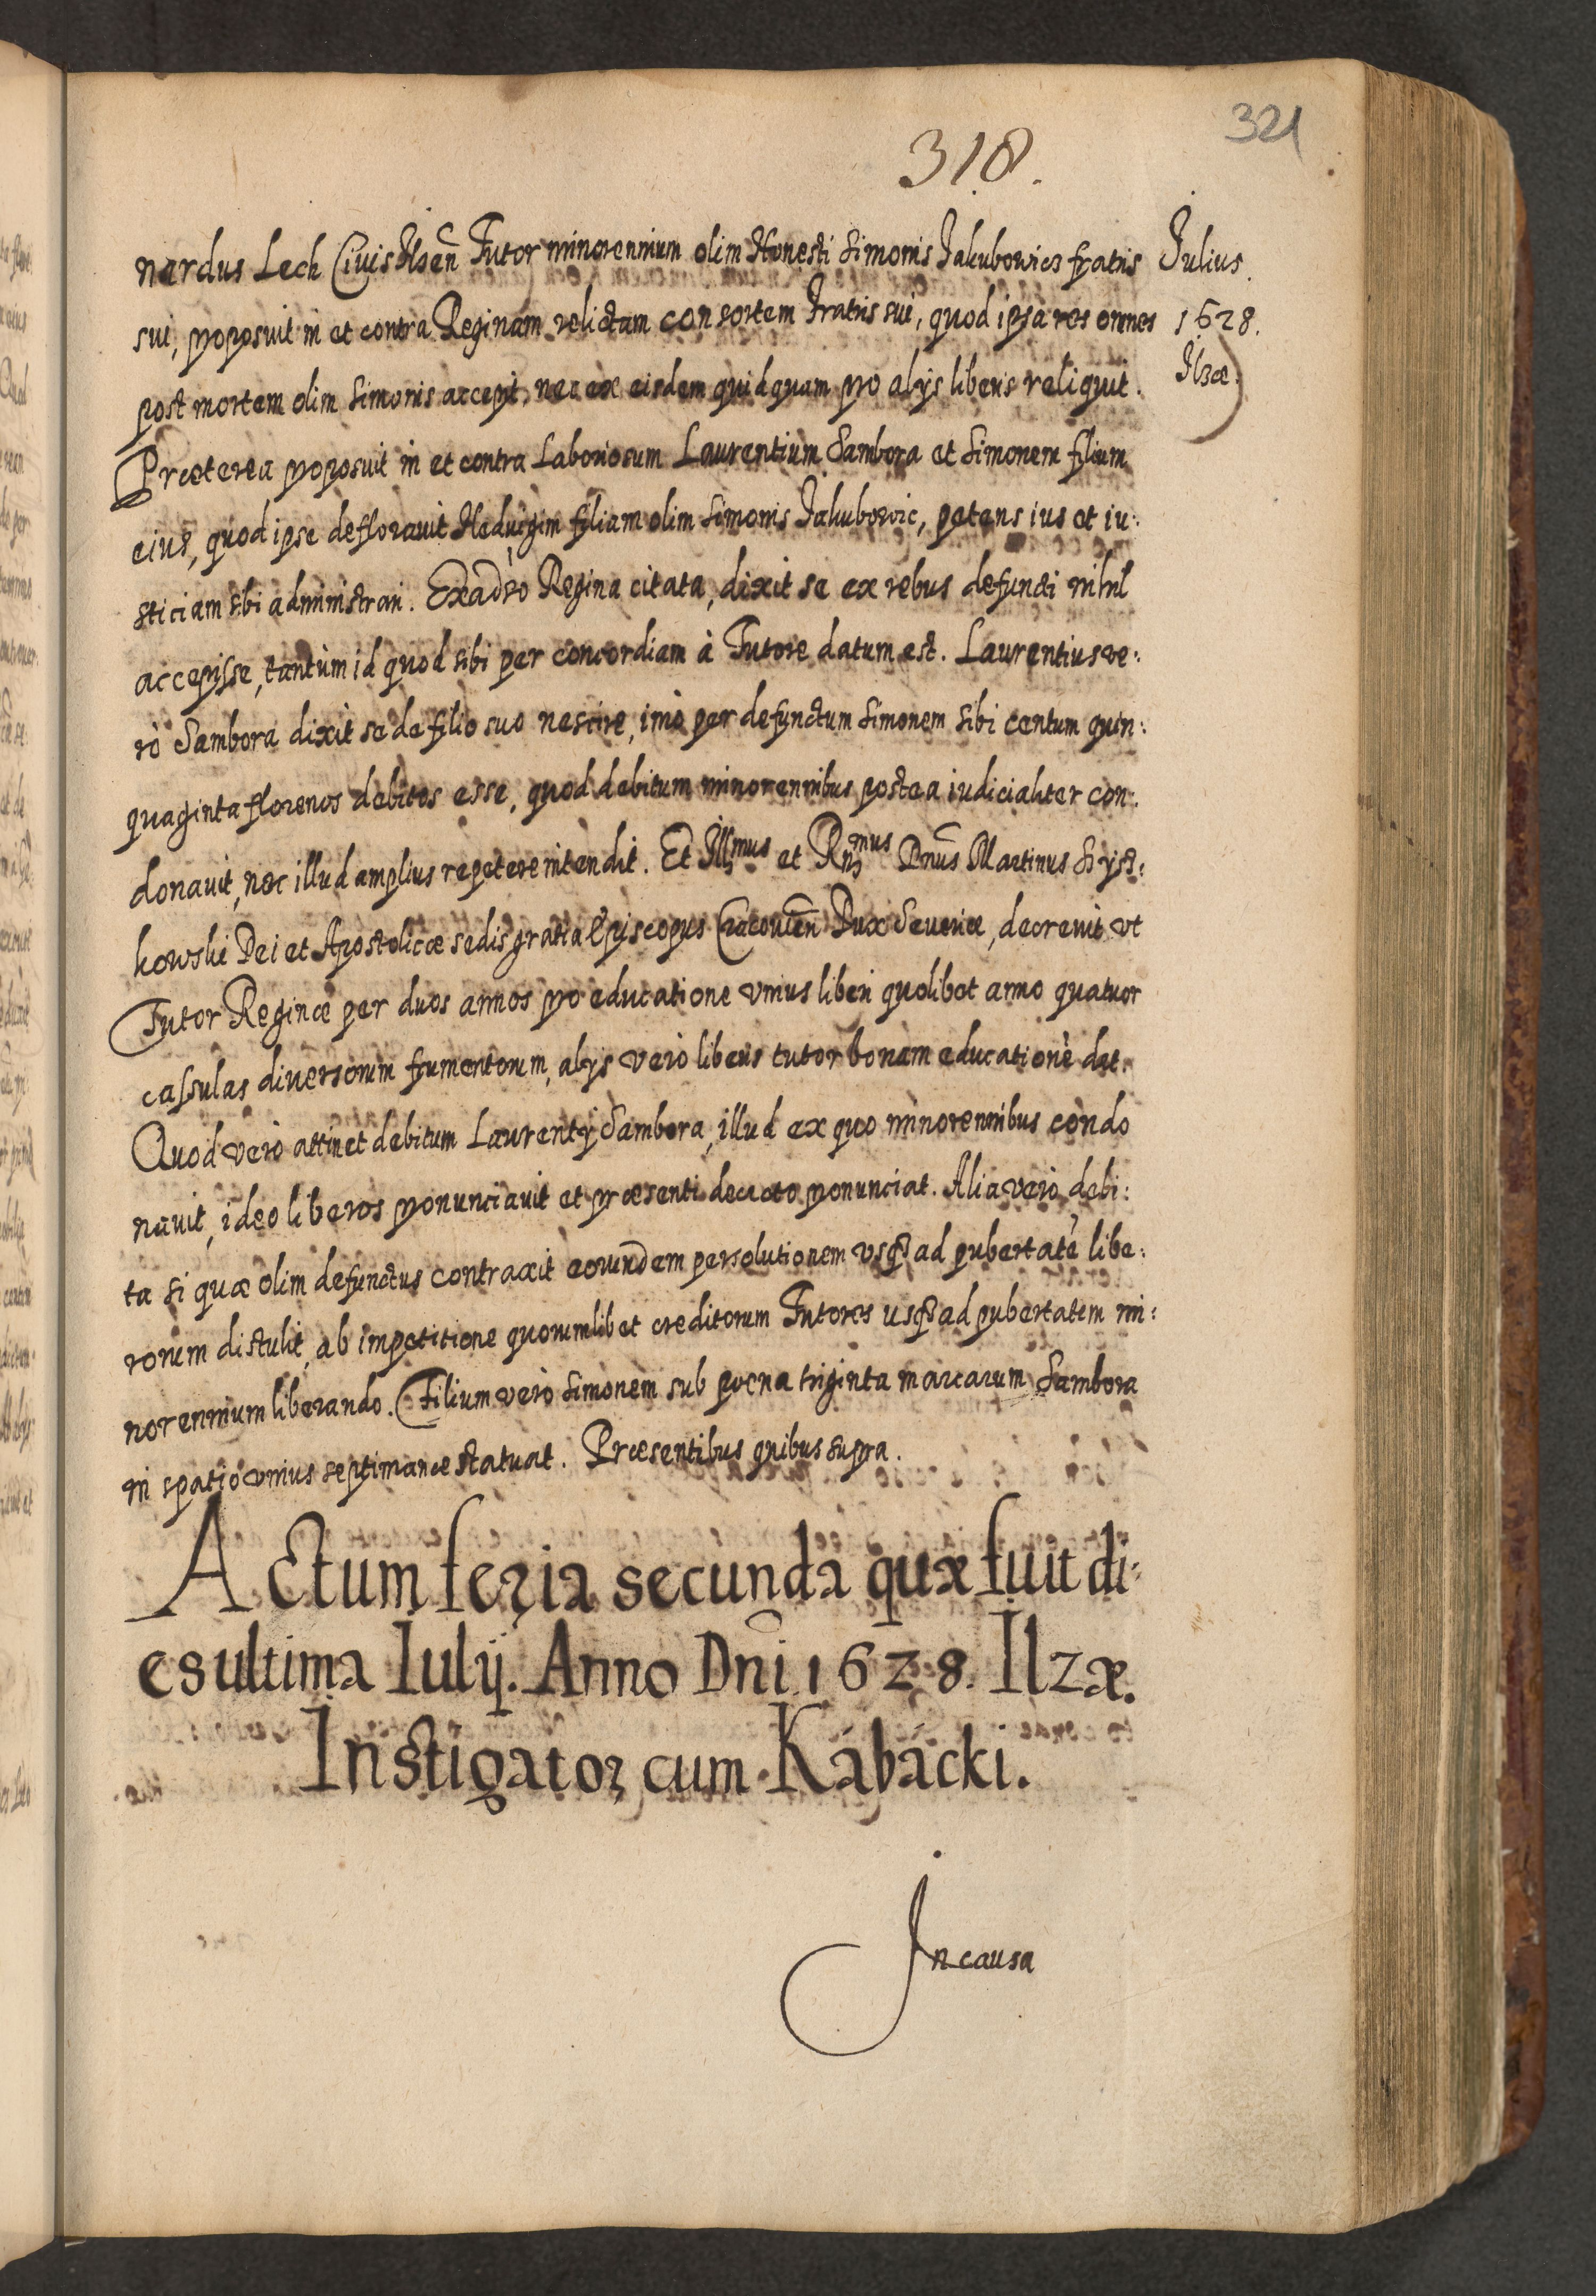 321
318.
Julius
1628.
Ilzæ
nardus Lech Civis Ilzen̄ Tutor minorennium olim Honesti Simonis Jakubowicz fratris
sui, proposuit in et contra Reginam relictam consortem fratris sui, quod ipsa res omnes
post mortem olim Simonis accepit, nec ex eisdem quidquam pro alys liberis reliquit.
Præterea proposuit in et contra Laboriosum Laurentium Sambora et Simonem filium
eius, quod ipse defloravit Hedvigim filiam olim Simonis Jakubowic, petens ius et iu:
sticiam sibi administrari. Regina citata, dixit se ex rebus defuncti nihil
accepisse, tantùm id quod sibi per concordiam à Tutore datum est. Laurentius ve:
rò Sambora dixit se de filio suo nescire, imò per defunctum Simonem sibi centum quin:
quaginta florenos debitos esse, quod debitum minorennibus postea iudicialiter con:
donauit, nec illud amplius repetere intendit. Et Illmus et Rndmus Dnūs Martinus Szysz:
kowski Dei et Apostolicæ sedis gratia Episcopus Cracovien̄ Dux Severiæ, decrevit vt
Tutor Reginæ per duos annos pro educatione vnius liberi quolibet anno quatuor
cassulas diversorum frumentorum, alys verò liberis tutor bonam educationē det.
Quod verò attinet debitum Laurentÿ Sambora, illud ex quo minorennibus condo
nauit, ideo liberos pronunciauit et præsenti decreto pronunciat. Alia verò debi:
ta si quæ olim defunctus contraxit eorundem persolutionem vsq̢ ad pubertatē libe:
rorum distulit, ab impetitione quorumlibet creditorum Tutores usq̢ ad pubertatem mi:
norennium liberando. Filium verò Simonem sub poena triginta marcarum Sambora
in spatio vnius septimanæ statuat. Præsentibus quibus supra.
Actum feria secunda quæ fuit di:
es ultima Iulÿ. Anno Dnī 1628. Ilzæ.
Instigator cum Kábácki.
In causa